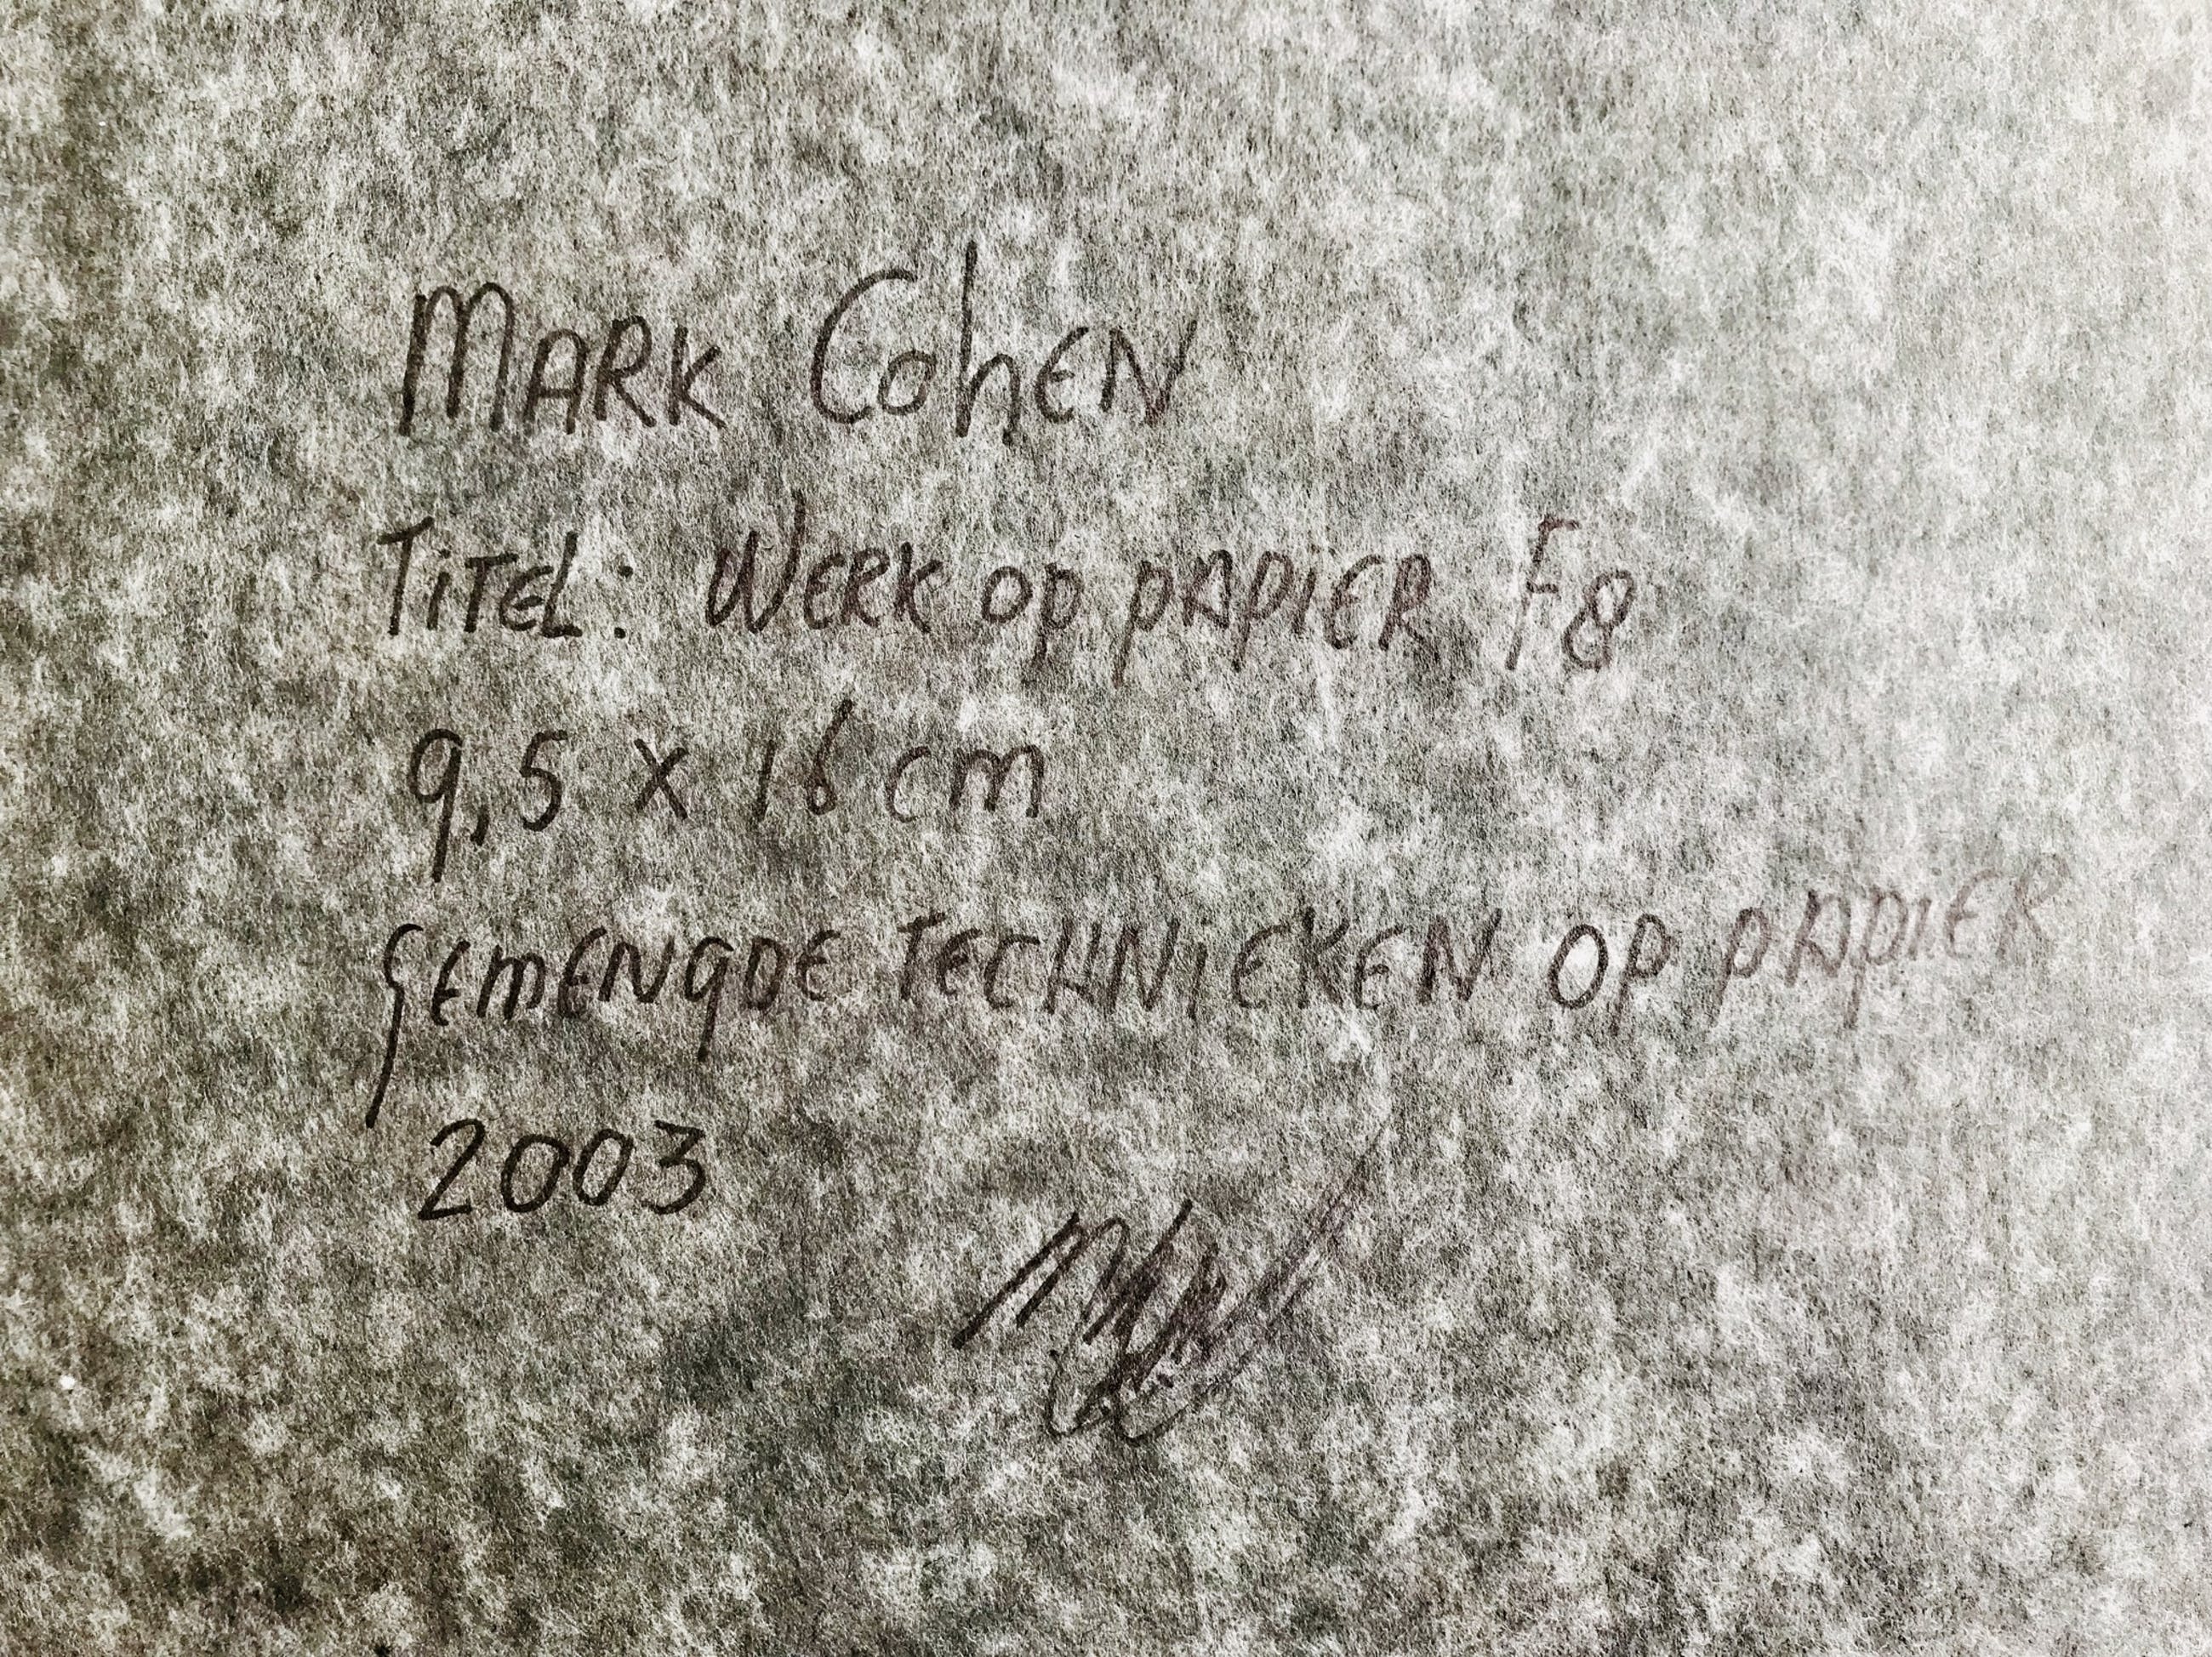 MARK COhEN
TiTEL: WERK OP PAPiER F8
9,5 x 16 cm
GEMENGDE TECHNiEKEN OP PAPiER
2003